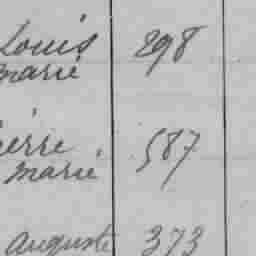 Louis 298
marie
ierre 587
marie
auguste 373